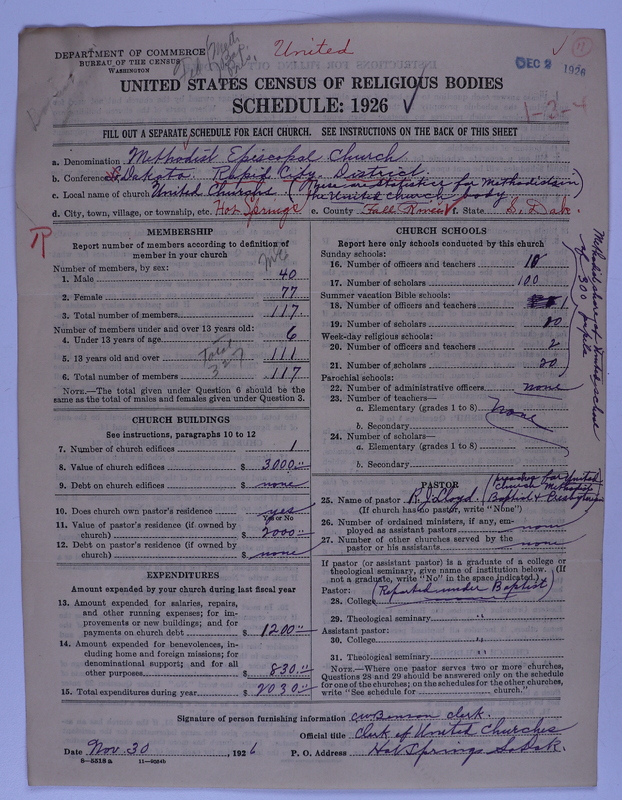 DEPARTMENT OF COMMERCE
BUREAU OF THE CENSUS
WASHINGTON
United
DEC 2 1926
11
UNITED STATES CENSUS OF RELIGIOUS BODIES
SCHEDULE: 1926
1-2-4
FILL OUT A SEPARATE SCHEDULE FOR EACH CHURCH. SEE INSTRUCTIONS ON THE BACK OF THIS SHEET
a. Denomination Methodist Episcopal Church
b. Conference S. Dakota. Rapid City District
c. Local name of church United Churchs (These are statistics for methodists in the United church body)
d. City, town, village, or township, etc. Hot Springs e. County Fall River f. State S. Dak.
MEMBERSHIP
Report number of members according to definition of
member in your church
Number of members, by sex:
1. Male 40
2. Female 77
3. Total number of members 117
Number of members under and over 13 years old:
4. Under 13 years of age 6
5. 13 years old and over 111
6. Total number of members 117
Total
327
NOTE.—The total given under Question 6 should be the
same as the total of males and females given under Question 3.
CHURCH BUILDINGS
See instructions, paragraphs 10 to 12
7. Number of church edifices 1
8. Value of church edifices $ 3000.00
9. Debt on church edifices $ none
10. Does church own pastor's residence yes
Yes or No
11. Value of pastor's residence (if owned by
church) $ 2000.00
12. Debt on pastor's residence (if owned by
church) $ none
EXPENDITURES
Amount expended by church during last fiscal year
13. Amount expended for salaries, repairs,
and other running expenses; for im-
provements or new buildings; and for
payments on church debt $ 1200.00
14. Amount expended for benevolences, in-
cluding home and foreign missions; for
denominational support; and for all
other purposes $ 830.00
15. Total expenditures during year $ 2030.00
CHURCH SCHOOLS
Report here only schools conducted by this church
Sunday schools:
16. Number of officers and teachers
17. Number of scholars 100
Summer vacation Bible schools:
18. Number of officers and teachers 1
19. Number of scholars
Week-day religious schools:
20. Number of officers and teachers 2
21. Number of scholars 20
Methodist share of United school of 300 pupils
Parochial schools:
22. Number of administrative officers none
23. Number of teachers—
a. Elementary (grades 1 to 8) none
b. Secondary
24. Number of scholars—
a. Elementary (grades 1 to 8)
b. Secondary
PASTOR
25. Name of pastor R. J. Lloyd. (preacher for United Church Methodist Baptist & Presbyterian
(If church has no pastor, write "None")
26. Number of ordained ministers, if any, em-
ployed as assistant pastors none
27. Number of other churches served by the
pastor or his assistants none
If pastor (or assistant pastor) is a graduate of a college or
theological seminary, give name of institution below. (If
not a graduate, write "No" in the space indicated.)
Pastor: (Reported under Baptist)
28. College
29. Theological seminary "
Assistant pastor:
30. College "
31. Theological seminary "
NOTE.—Where one pastor serves two or more churches,
Questions 28 and 29 should be answered only on the schedule
for one of the churches; on the schedules for the other churches,
write "See schedule for church."
Signature of person furnishing information CW Benson clerk.
Official title Clerk of United Churches
Date Nov 30, 1926 P. O. Address Hot Springs So Dak.
8—5518 a 11—9064b